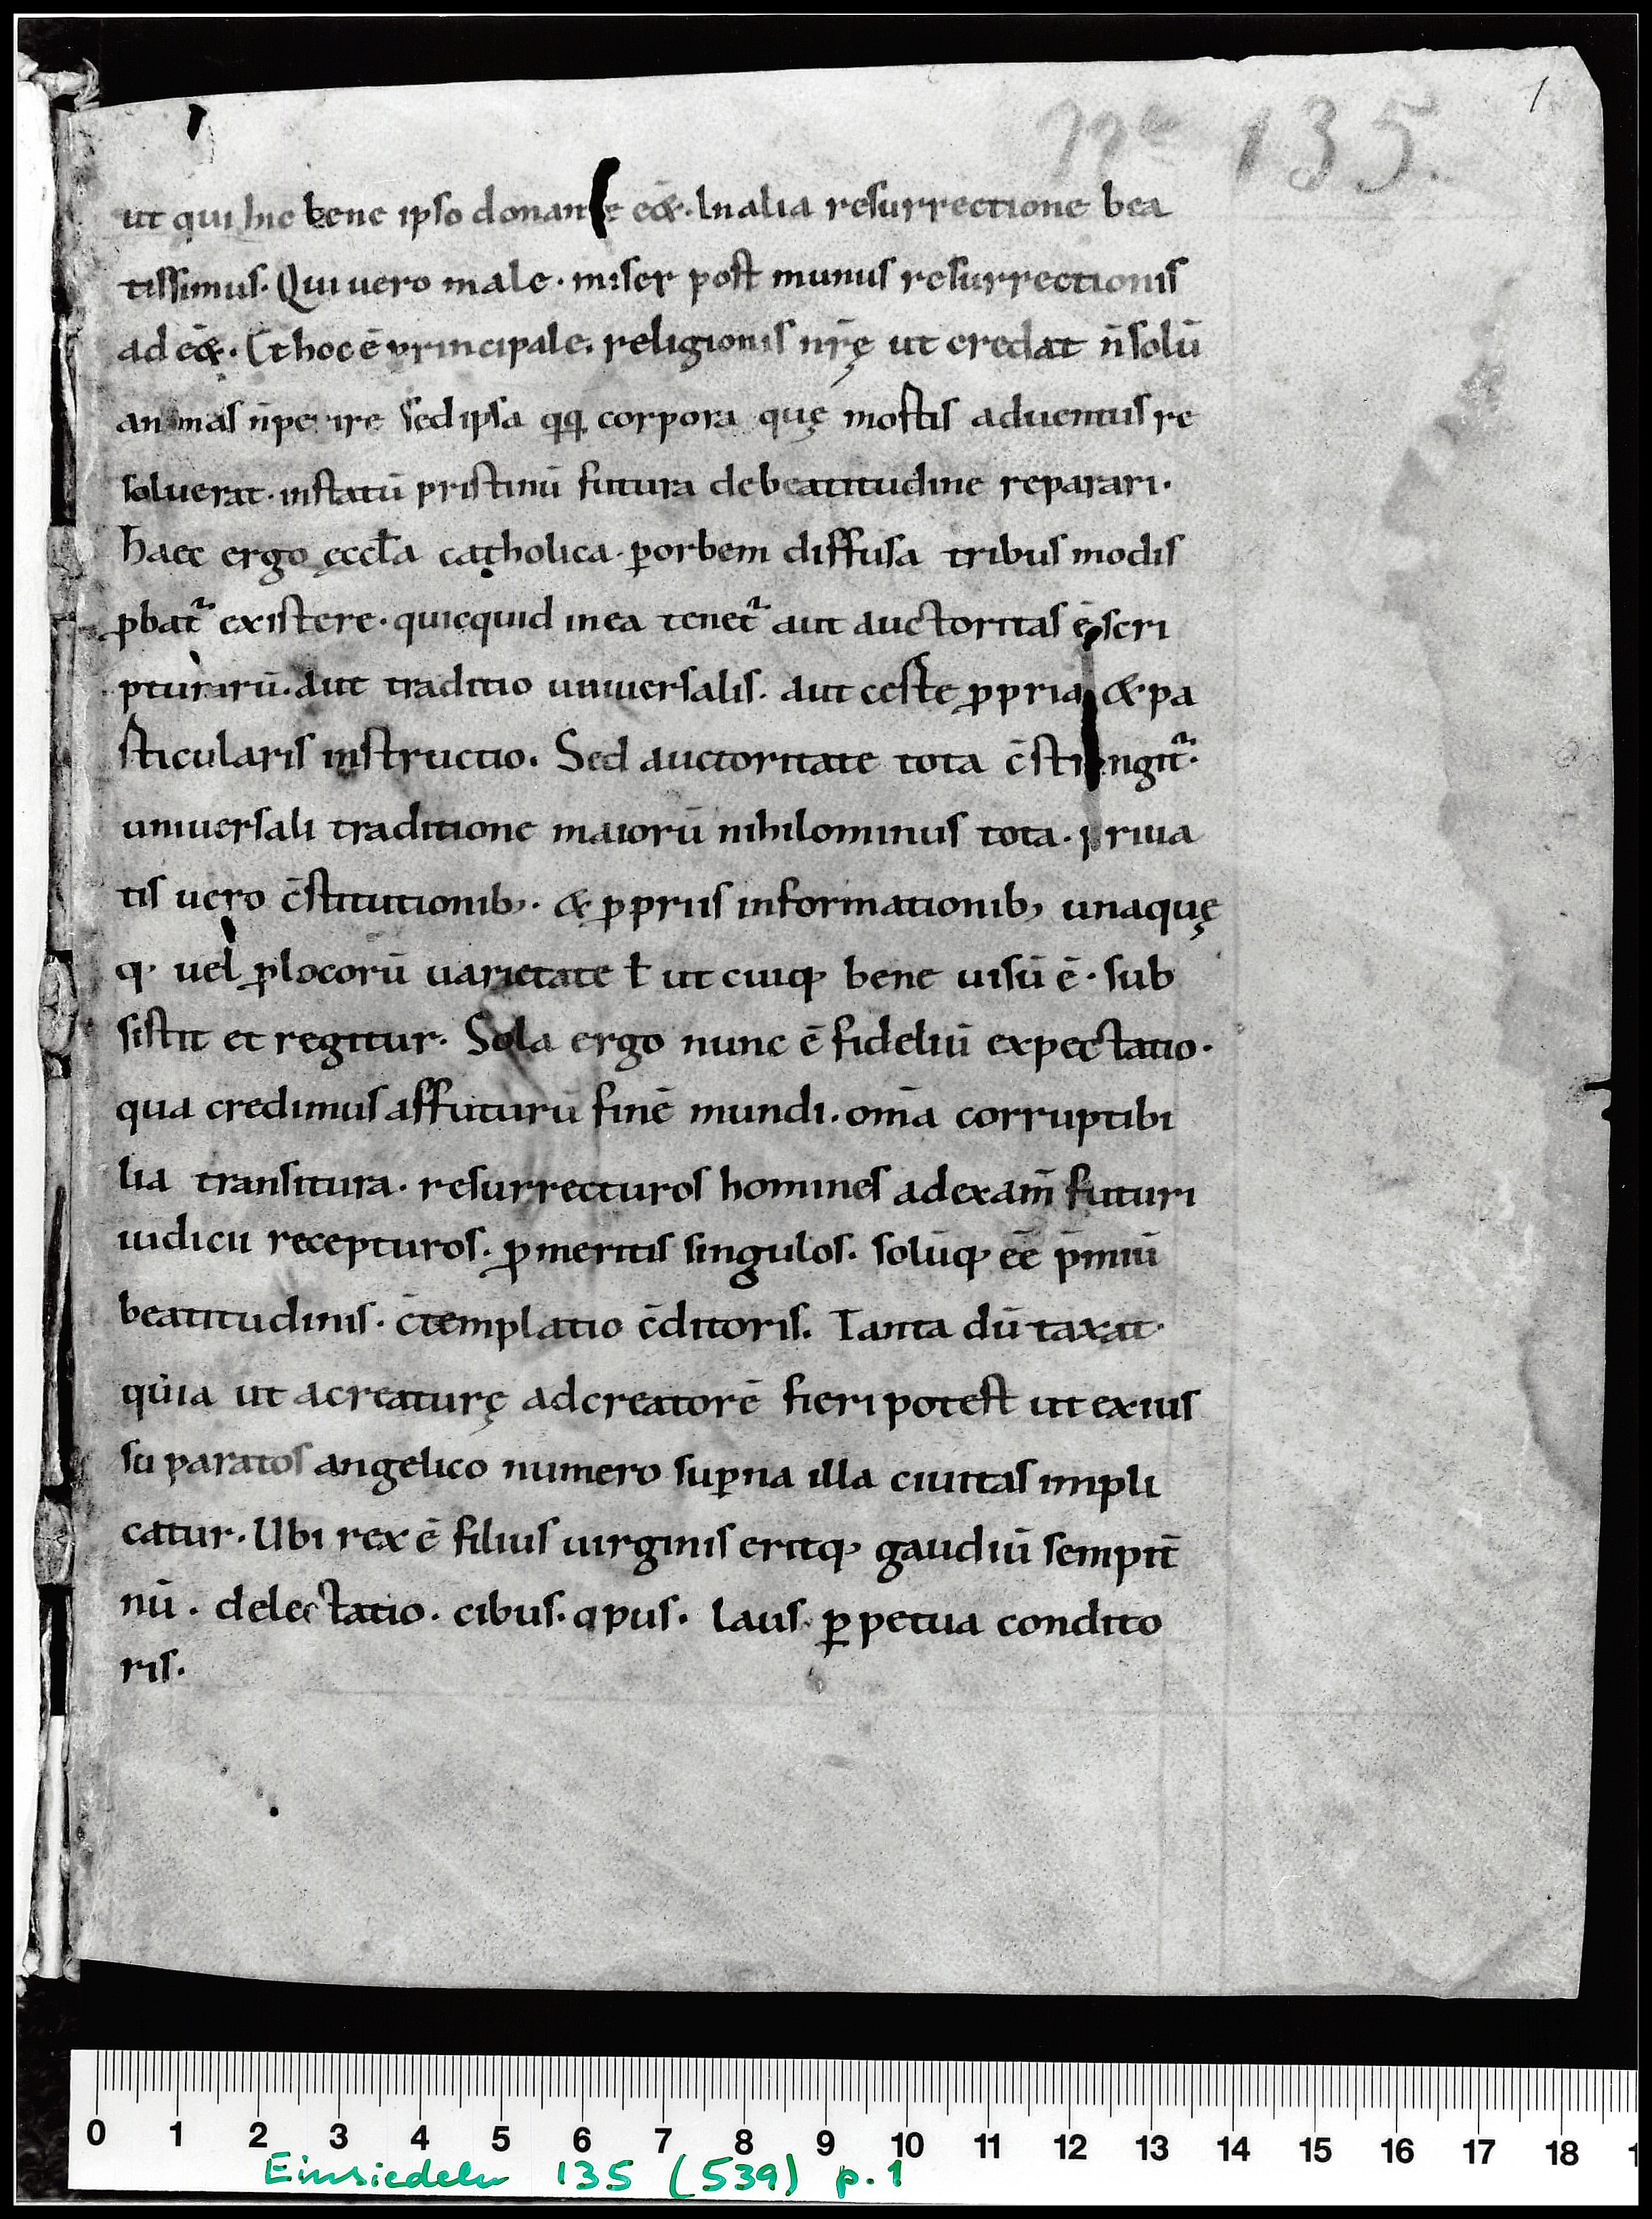 1
Nº 135.
ut qui hic bene ipso donante eē&. In alia resurrectione bea
tissimus. Qui uero male. miser post munus resurrectionis
ad eē&. Et hoc ē principale. religionis nr̄ę ut credat n̄ solū
animas n̄ perire sed ipsa qq; corpora quę mortis aduentus re
soluerat. in statū pristinū futura de beatitudine reparari.
haec ergo ęccƚa catholica. ꝑ orbem diffusa tribus modis
ꝓbat᷑ existere. quicquid in ea tenet᷑ aut auctoritas ē scri
pturarū. aut traditio uniuersalis. aut certe ꝓpria & pa
rticularis instructio. Sed auctoritate tota c̄stringit᷑.
uniuersali traditione maiorū nihilominus tota. priua
tis uero c̄stitutionib;. & ꝓpriis informationib; unaquę
q; uel ꝓ locorū uarietate ƚ ut cuiq; bene uisū ē. sub
sistit et regitur. Sola ergo nunc ē fideliū expectatio.
qua credimus affuturū finē mundi. om̄a corruptibi
lia transitura. resurrecturos homines ad exam̄ futuri
iudicii recepturos. ꝓ meritis singulos. solūq; eē p̄miū
beatitudinis. c̄templatio c̄ditoris. Tanta dū taxat.
quia ut a creaturę ad creatorē fieri potest ut ex ius
su paratos angelico numero suꝑna illa ciuitas impli
catur. Ubi rex ē filius uirginis eritq; gaudiū sempit̄
nū. delectatio. cibus. opus. laus. ꝑpetua condito
ris.
0 1 2 3 4 5 6 7 8 9 10 11 12 13 14 15 16 17 18
Einsiedeln 135 (539) p. 1